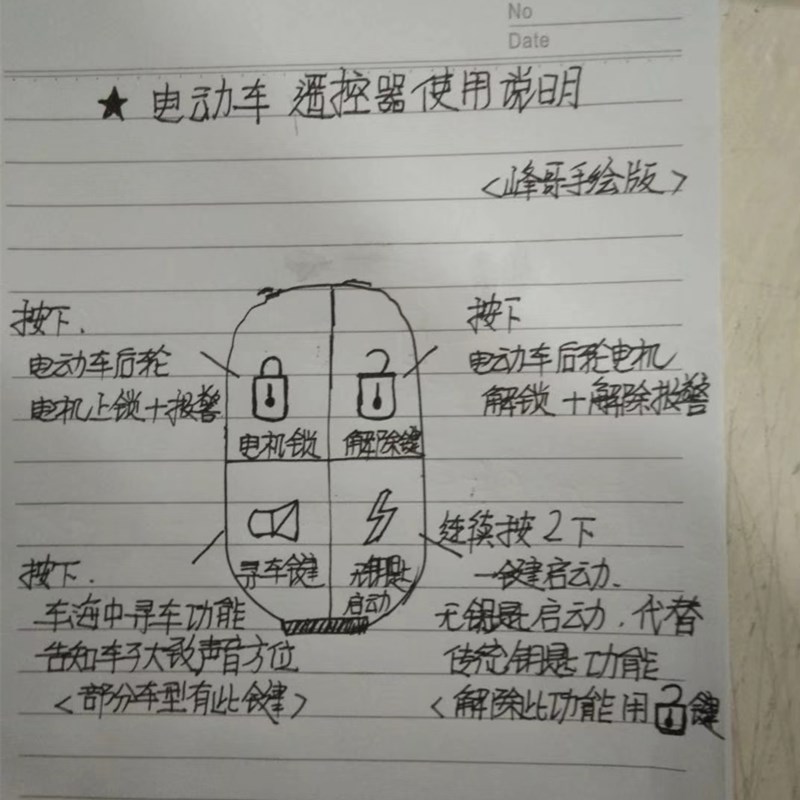 No
Date
★ 电动车 遥控器使用说明
<峰哥手绘版>
按下.
电动车后轮
电机上锁+报警
按下
电动车后轮电机
解锁+解除报警
电机锁
解除键
寻车键
无钥匙
启动
按下.
车海中寻车功能
告知车子大致声音方位
<部分车型有此键>
连续按2下
一键启动.
无钥匙启动.代替
传统钥匙功能
<解除此功能用键